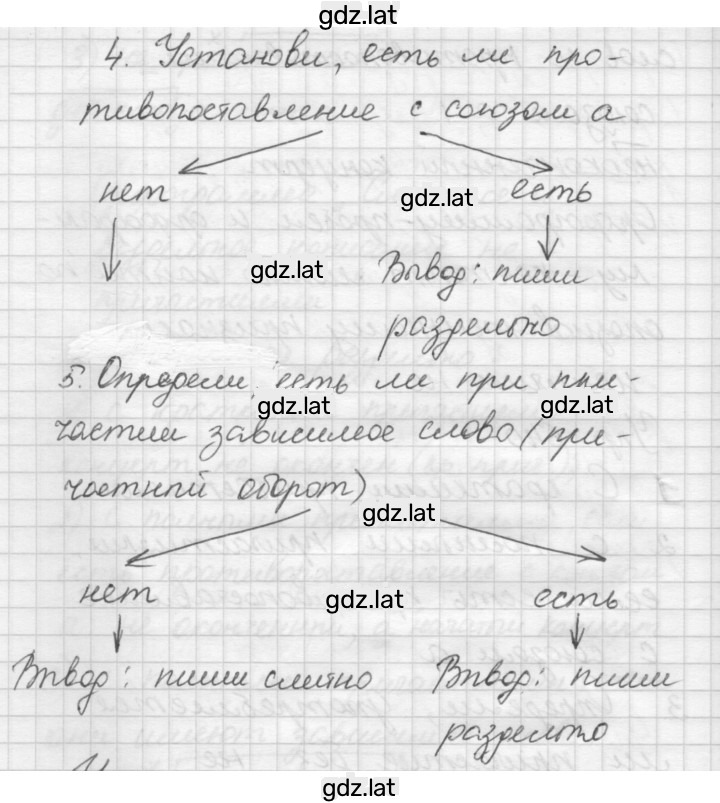 gdz.lat
4. Установи, есть ли про-
тивопоставление с союзом а
нет есть
gdz.lat
gdz.lat
Вывод: пиши
раздельно
5. Определи, есть ли при при-
gdz.lat gdz.lat
частии зависимое слово (при-
частный оборот)
gdz.lat
нет gdz.lat есть
Вывод: пиши слитно Вывод: пиши
раздельно
gdz.lat